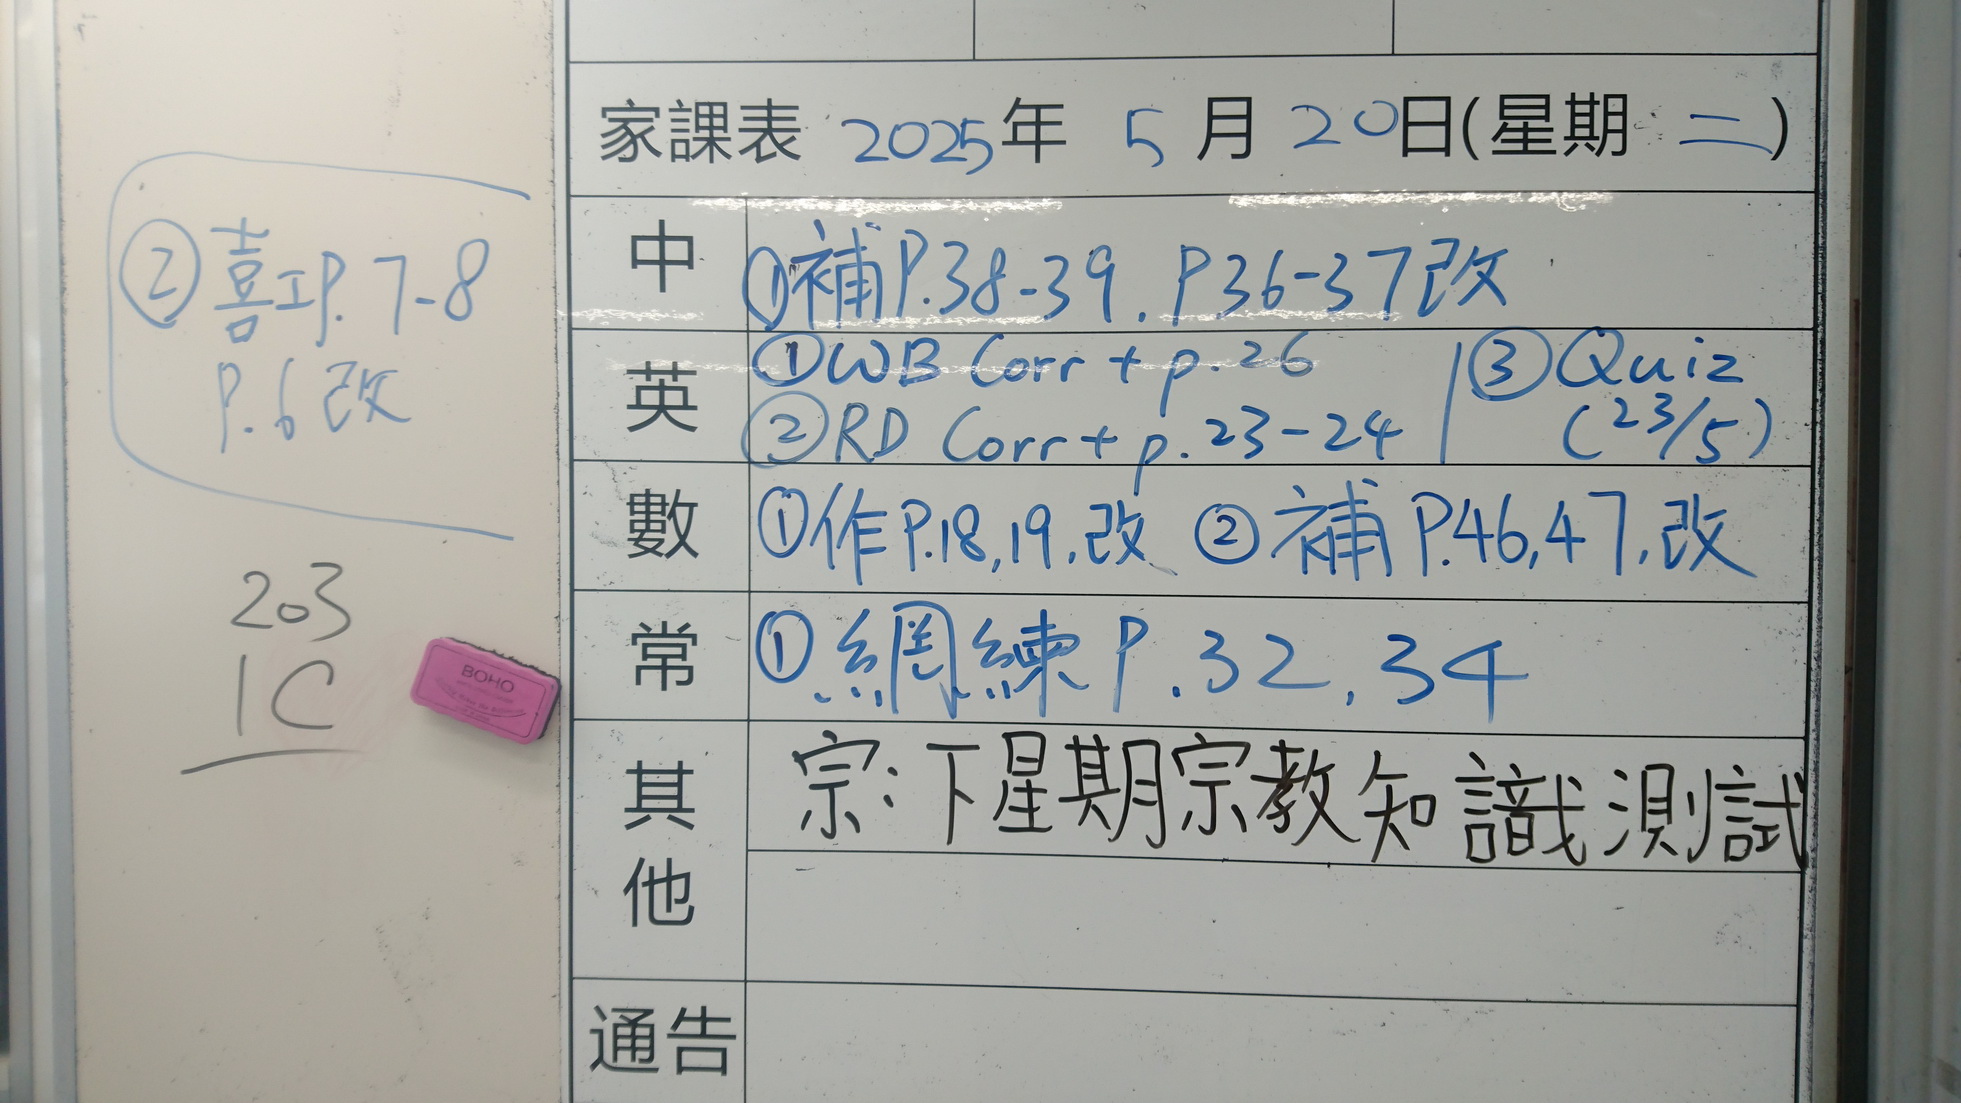 家課表 2025年 5月20日(星期二)
中 ①補P.38-39. P36-37改
②喜工P.7-8
P.6改
英 ①WB Corr + p.26
②RD Corr + p.23-24
③Quiz
(23/5)
數 ①作P.18,19.改 ②補P.46,47.改
常 ①網練P.32,34
其他 宗:下星期宗教知識測試
通告
203
1C
BOHO